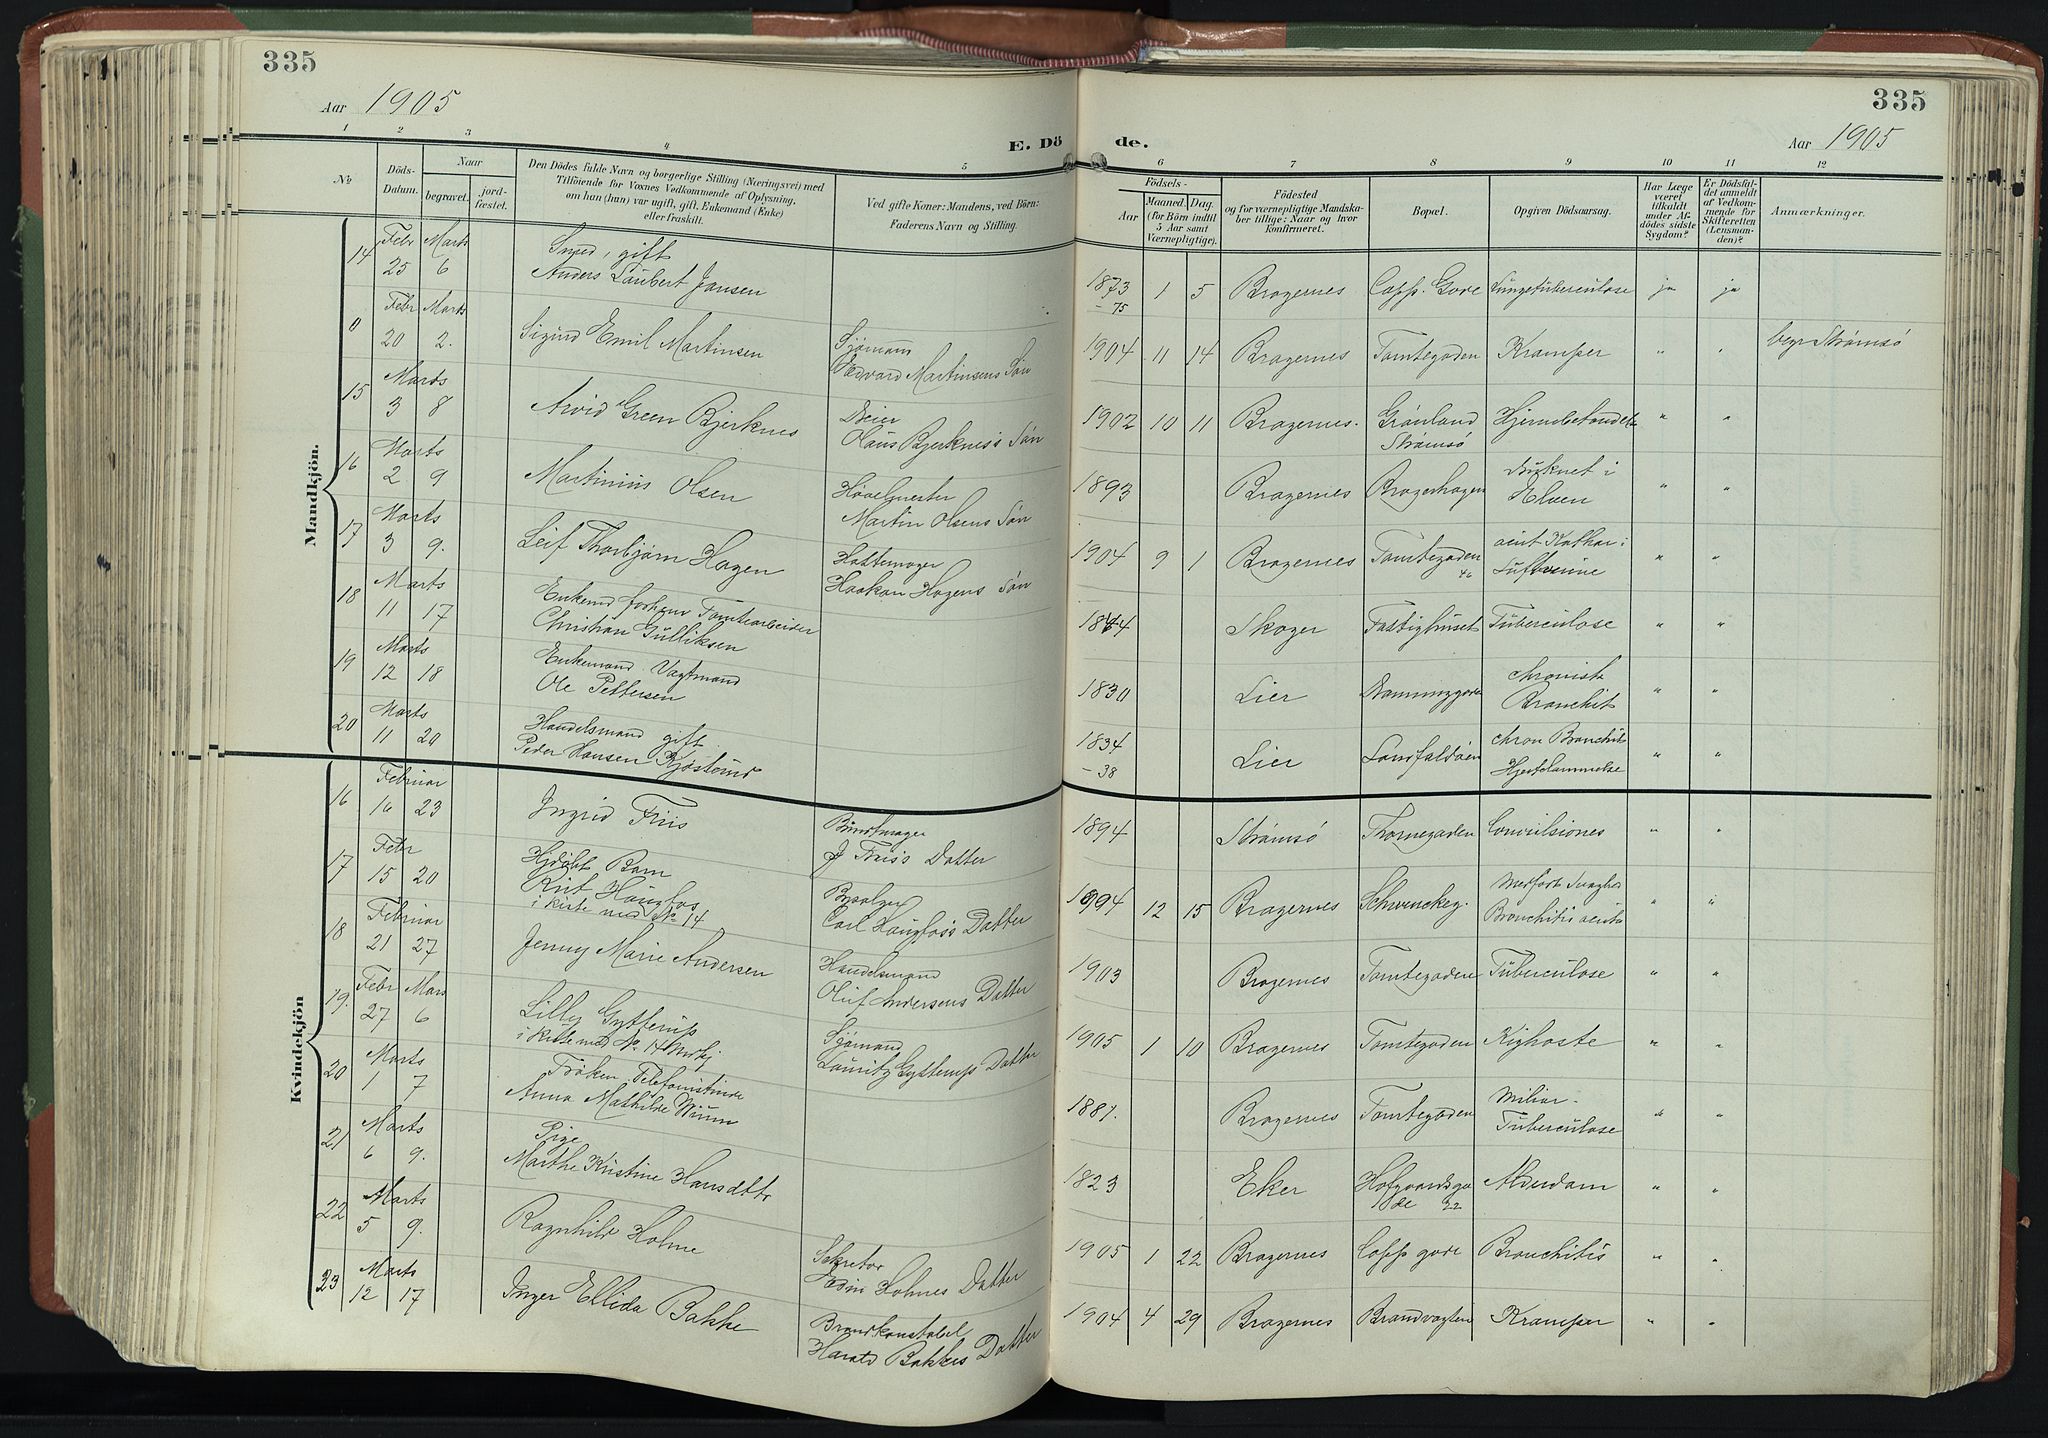 335
335
Aar 1905
E. Dö
de.
Aar 1905
1 2 3 4 5 6 7 8 9 10 11 12
No
Döds-Datum.
Naar
begravet.
jord-fæstet.
Den Dödes fulde Navn og borgerlige Stilling (Næringsvei) med
Tilföiende for Voxnes Vedkommende af Oplysning,
om han (hun) var ugift, gift, Enkemand (Enke)
eller fraskilt.
Ved gifte Koner: Mandens, ved Börn:
Faderens Navn og Stilling.
Födsels-
Aar
Maaned. Dag.
(for Börn indtil
5 Aar samt
Værnepligtige).
Födested
og for værnepligtige Mandska-
ber tillige: Naar og hvor
Konfirmeret.
Bopæl.
Opgiven Dödsaarsag.
Har Læge
været
tilkaldt
under Af-
dödes sidste
Sygdom?
Er Dödsfal-
det anmeldt
af Vedkom-
mende for
Skifteretten
(Lensman-
den)?
Anmærkninger.
Mandkjön.
14 Febr 25 Marts 6 Smed, gift
Anders Laubert Jansen 1873 1 5 Bragernes Capp. Gade Lungetuberculose ja ja
- 75
0 Febr 20 Marts 2. Sigurd Emil Martinsen Sjømand
Edvard Martinsens Søn 1904 11 14 Bragernes Tomtegaden Kramper " " begr Strømsø
15 Marts 3 8 Arvid Green Bjerknes Olaus Bjerknes's Søn 1902 10 11 Bragernes. Grønland
Strømsø Hjernebetændelse " "
16 Marts 2 9 Martinius Olsen Høvelmester
Martin Olsens Søn 1893 Bragernes Bragerhagen Druknet i
Elven " "
17 Marts 3 9. Leif Thorbjørn Hagen Hattemager
Haakon Hagens Søn 1904 9 1 Bragernes Tomtegaden
46 acut Kathar i
Luftveiene " "
18 Marts 11 17 Enkemd forhenv Tomtearbeider
Christian Gulliksen 1844 Skoger Fattighuset Tuberculose " "
19 Marts 12 18 Enkemand Vagtmand
Ole Pettersen 1830 Lier chronisk
Bronchit " "
20 Marts 11 20 Handelsmand gift
Peder Hansen 1834 Lier Landfaldøen chron Bronchit
Hjertelammelse " "
- 38
Kvindekjön
16 Februar 16 23 Ingrid Friis Buntmager
J Friis's Datter 1894 Strømsø Thornegaden Convulsiones " "
17 Febr 15 20 Hjdøbt Barn
Rut Haugfos
i kiste med No 14 Carl Haugfos's Datter 1904 12 15 Bragernes Schwenckeg. Medfødt Svaghed
Bronchitis acuta " "
18 Februar 21 27 Jenny Marie Andersen Handelsmand
Oluf Andersens Datter 1903 Bragernes Tomtegaden Tuberculose " "
19. Febr 27 Mars 6 Lilly Gytterup
i kiste med No 14 Sjømand
Lauritz Gytterups Datter 1905 1 10 Bragernes Tomtegaden Kighoste " "
20 Marts 1 7 Frøken Telefonistinde
Anna Mathilde Wium 1881. Bragernes Tomtegaden Miliar-
Tuberculose " "
21 Marts 6 9. Pige
Marthe Kristine Hansdttr 1823 Eker Hofgaardsga
de 22 Alderdom " "
22 Marts 5 9. Ragnhild Holme Sekretær
Holmes Datter 1905 1 22 Bragernes Capps gade Bronchitis " "
23 Marts 12 17 Inger Ellida Bakke Brandkonstabel
Harald Bakkes Datter 1904 4 29 Bragernes Brandvagten Kramper " "